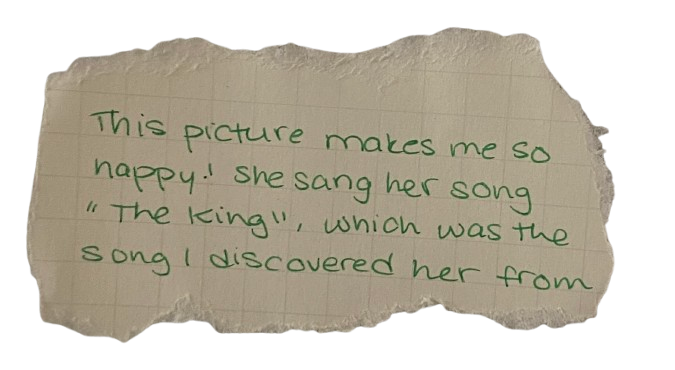 This picture makes me so
happy! She sang her song
"The King", which was the
song I discovered her from